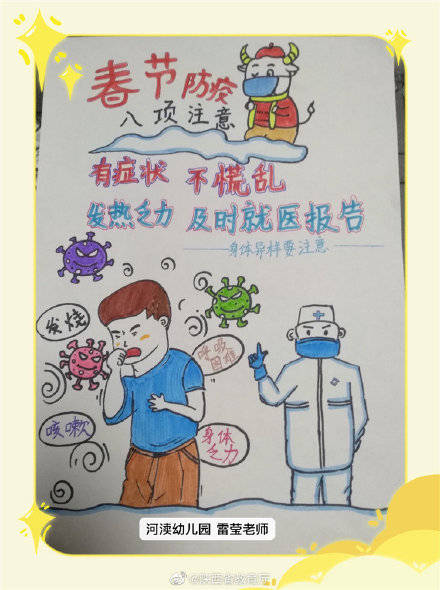 春节防疫
八项注意
有症状 不慌乱
发热乏力 及时就医报告
身体异样要注意
发烧
呼吸
困难
咳嗽
身体
乏力
河渎幼儿园 雷莹老师
@陕西省教育厅